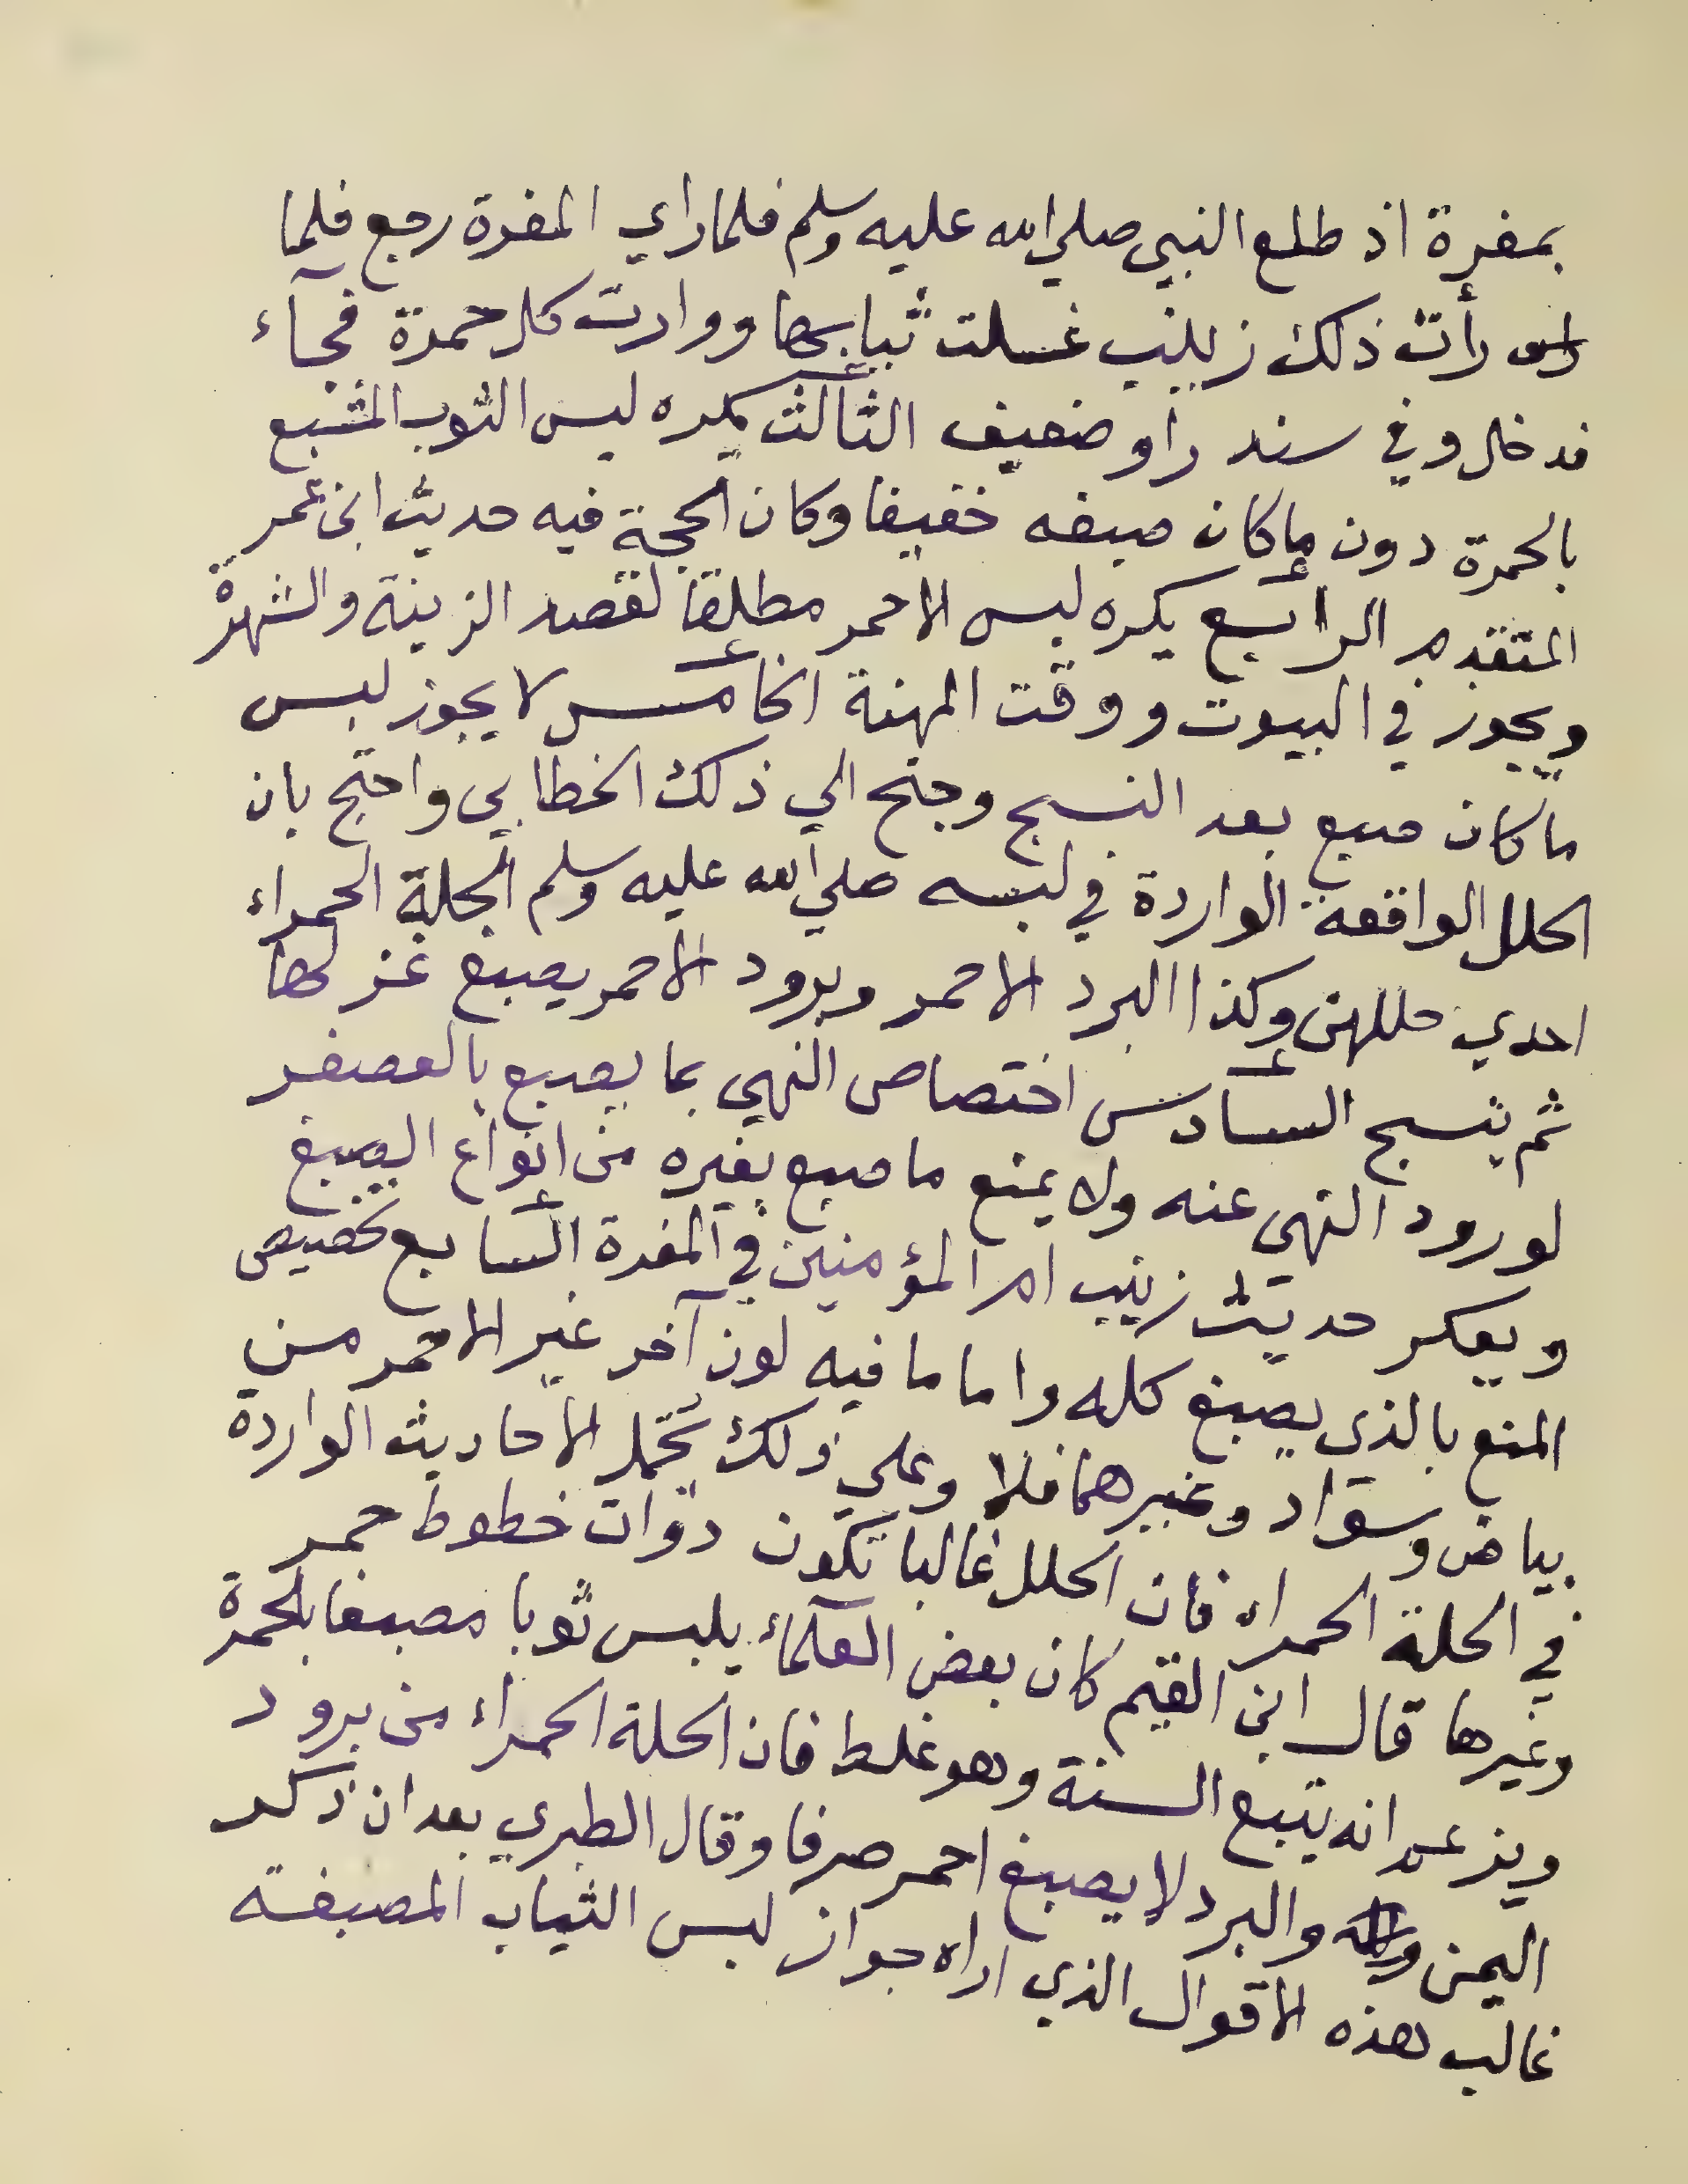 بمغرة اذ طلع النبي صلي الله عليه وسلم فلما راي المغرة رجع فلما
رأت ذلك زينب غسلت ثيابها ووارت كل حمرة فجآء
فدخل وفي سند راو ضعيف الثالث يكره لبس الثوب المشبع
بالحمرة دون ما كان صبغه خفيفا وكان الحجة فيه حديث ابن عمر
المتقدم الرابع يكره لبس الاحمر مطلقا لقصد الزينة والشهرة
ويجوز في البيوت ووقت المهنة الخامس لا يجوز لبس
ما كان صبغ بعد النسج وجنح الي ذلك الخطابي واحتج بان
الحلل الواقعة الواردة في لبسه صلي الله عليه وسلم الحلة الحمراء
احدي حللهن وكذا البرد الاحمر وبرود الاحمر يصبغ غزلها
ثم ينسج السادس اختصاص النهي بما يصبغ بالعصفر
لورود النهي عنه ولا يمنع ما صبغ بغيره من انواع الصبغ
ويعكر حديث زينب ام المؤمنين في المغرة السابع تخصيص
المنع بالذي يصبغ كله واما ما فيه لون آخر غير الاحمر من
بياض وسواد وغيرهما فلا وعلي ذلك تحمل الاحاديث الواردة
في الحلة الحمراء فان الحلل غالبا تكون ذوات خطوط حمر
وغيرها قال ابن القيم كان بعض العلماء يلبس ثوبا مصبغا بالحمرة
ويزعم انه يتبع السنة وهو غلط فان الحلة الحمراء من برود
اليمن والبرد لا يصبغ احمر صرفا وقال الطبري بعد ان ذكر
غالب هذه الاقوال الذي اراه جواز لبس الثياب المصبغة